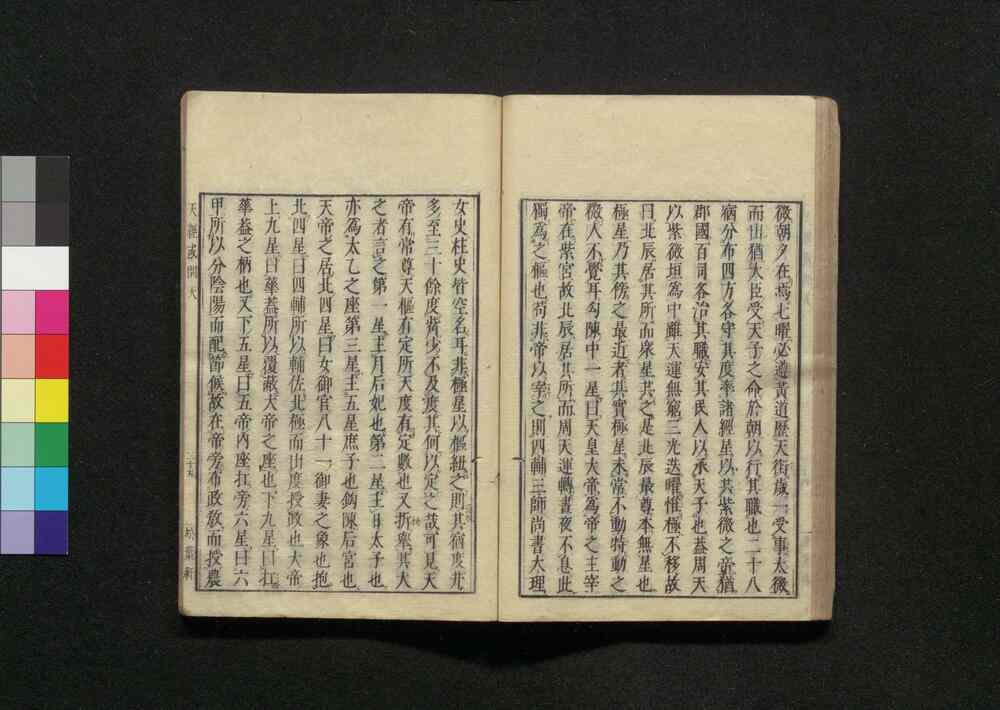 微朝夕在焉七曜必遵黃道歷天街歲一受事太微
而出猶大臣受天子之命於朝以行其職也二十八
宿分布四方各守其度率諸經星以共紫微之帝猶
郡國百司各治其職安其民人以承天子也蓋周天
以紫微垣爲中雖天運無窮三光迭曜惟極不移故
曰北辰居其所而衆星共之是北辰最尊本無星也
極星乃其傍之最近者其實極星未常不動特動之
微人不覺耳勾陳中一星曰天皇大帝爲帝之主宰
帝在紫宮故北辰居其所而周天運轉晝夜不息此
獨爲之樞也苟非帝以宰之則四輔三師尚書大理
女史柱史皆空名耳非極星以樞紐之則其宿度井
多至三十餘度觜少不及度其何以定之哉可見天
帝有常尊天樞有定所天度有定數也又折衷其大
之者言之第一星主月后妃也第二星主日太子也
亦爲太乙之座第三星主五星庶子也鈎陳后宮也
天帝之居北四星曰女御官八十一御妻之象也抱
北四星曰四輔所以輔佐北極而出度授政也大帝
上九星曰華葢所以覆蔽大帝之座也下九星曰扛
華葢之柄也又下五星曰五帝內座扛旁六星曰六
甲所以分陰陽而配節候故在帝旁布政敎而授農
天經或問 天
三十五
松葉軒